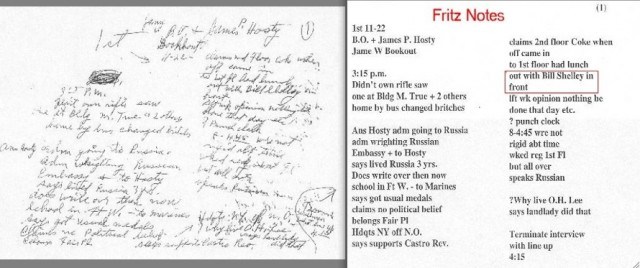 1st
B.O. + James P. Hosty
James
Bookout
11-22
(1)
3:15 P.M.
Didn't own rifle saw
one at Bldg M. True + 2 others
home by bus changed britches
Ans Hosty adm going to Russia
adm wrighting Russian
Embassy + to Hosty
says lived Russia 3 yrs.
Does write over then now
school in Ft W. - to Marines
says got usual medals
claims no Political belief
belongs Fair Pl
Hdqts NY off N.O.
says supports Castro Rev.
claims 2nd Floor Coke when
off came in
to 1st fl had lunch
out with Bill Shelley in
front
lft wk opinion nothing be
done that day etc.
? punch clock
8-4:45 wre not
rigid abt time
wked reg 1st Fl
but all over
speaks Russian
?Why live O.H. Lee
says landlady
did that
Terminate
4:15
Fritz Notes
(1)
1st 11-22
B.O. + James P. Hosty
Jame W Bookout
3:15 p.m.
Didn't own rifle saw
one at Bldg M. True + 2 others
home by bus changed britches
Ans Hosty adm going to Russia
adm wrighting Russian
Embassy + to Hosty
says lived Russia 3 yrs.
Does write over then now
school in Ft W. - to Marines
says got usual medals
claims no political belief
belongs Fair Pl
Hdqts NY off N.O.
says supports Castro Rev.
claims 2nd floor Coke when
off came in
to 1st floor had lunch
out with Bill Shelley in
front
lft wk opinion nothing be
done that day etc.
? punch clock
8-4:45 wre not
rigid abt time
wked reg 1st Fl
but all over
speaks Russian
?Why live O.H. Lee
says landlady did that
Terminate interview
with line up
4:15